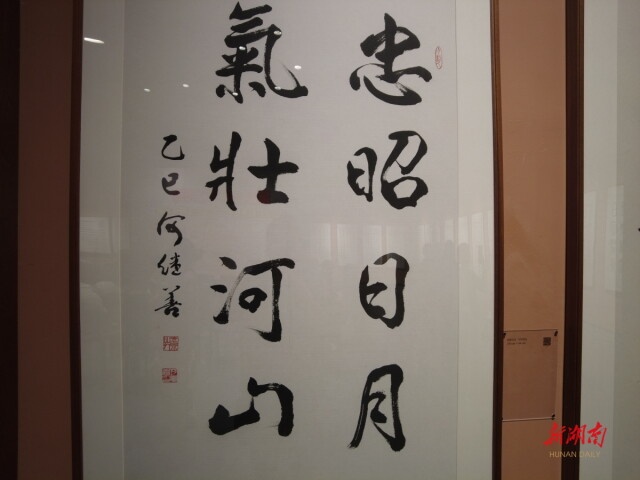 忠昭日月
氣壯河山
乙巳何继善
新湖南
HUNAN DAILY